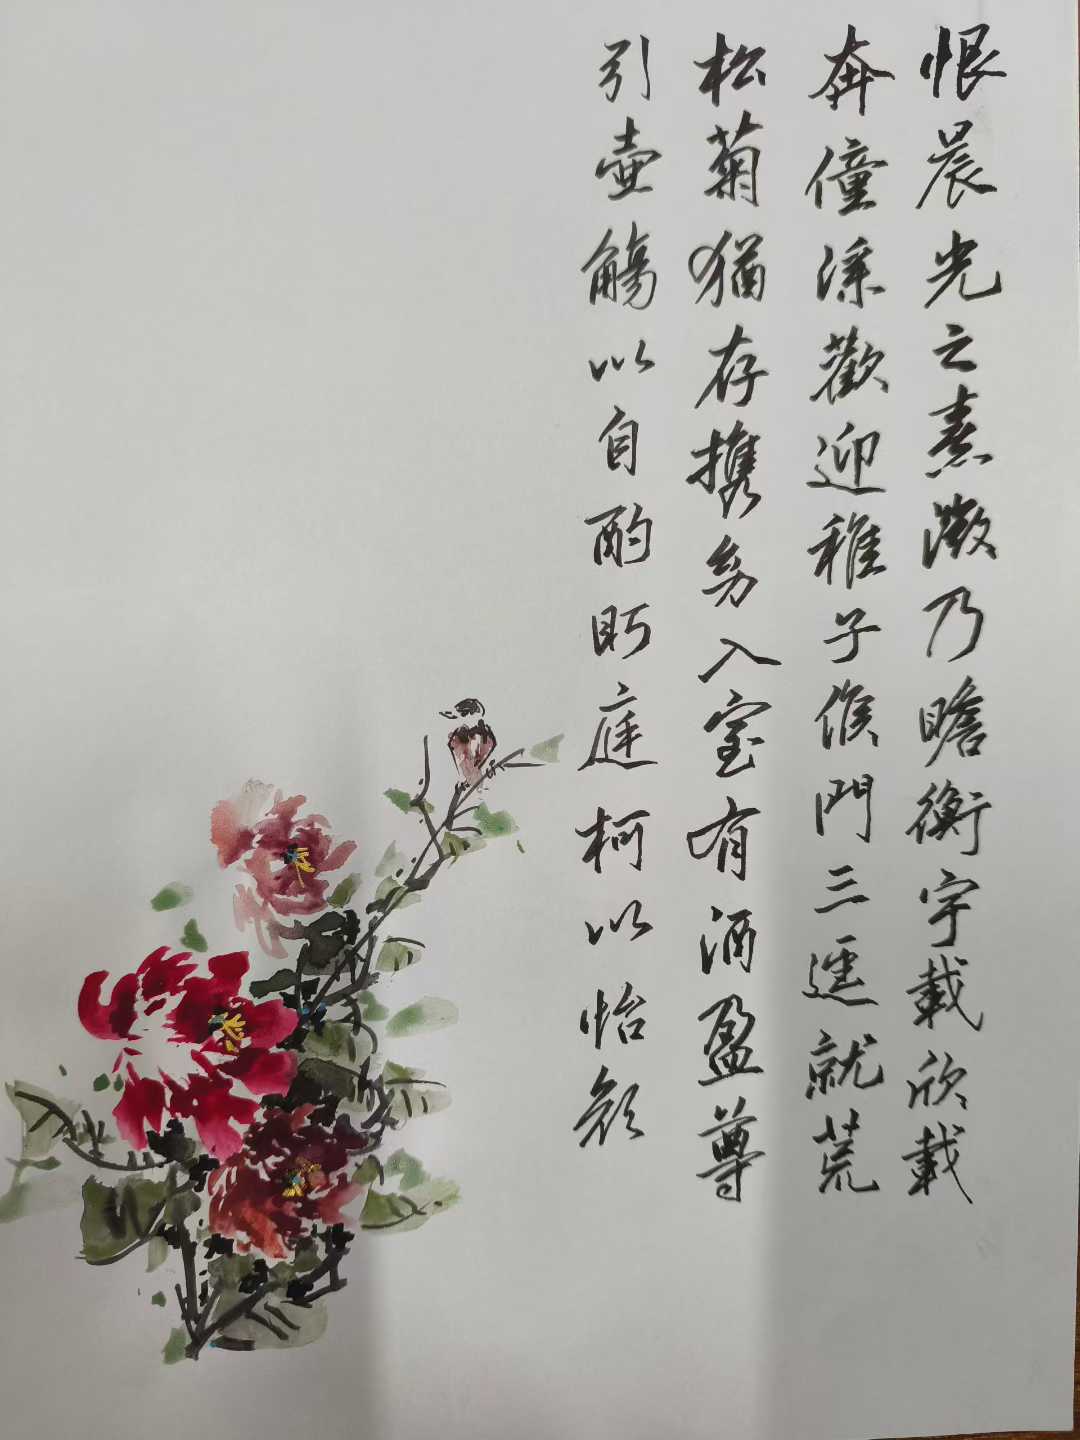 恨晨光之熹微乃瞻衡宇載欣載
奔僮溪歡迎稚子候門三逕就荒
松菊猶存攜幼入室有酒盈尊
引壺觴以自酌眄庭柯以怡顏